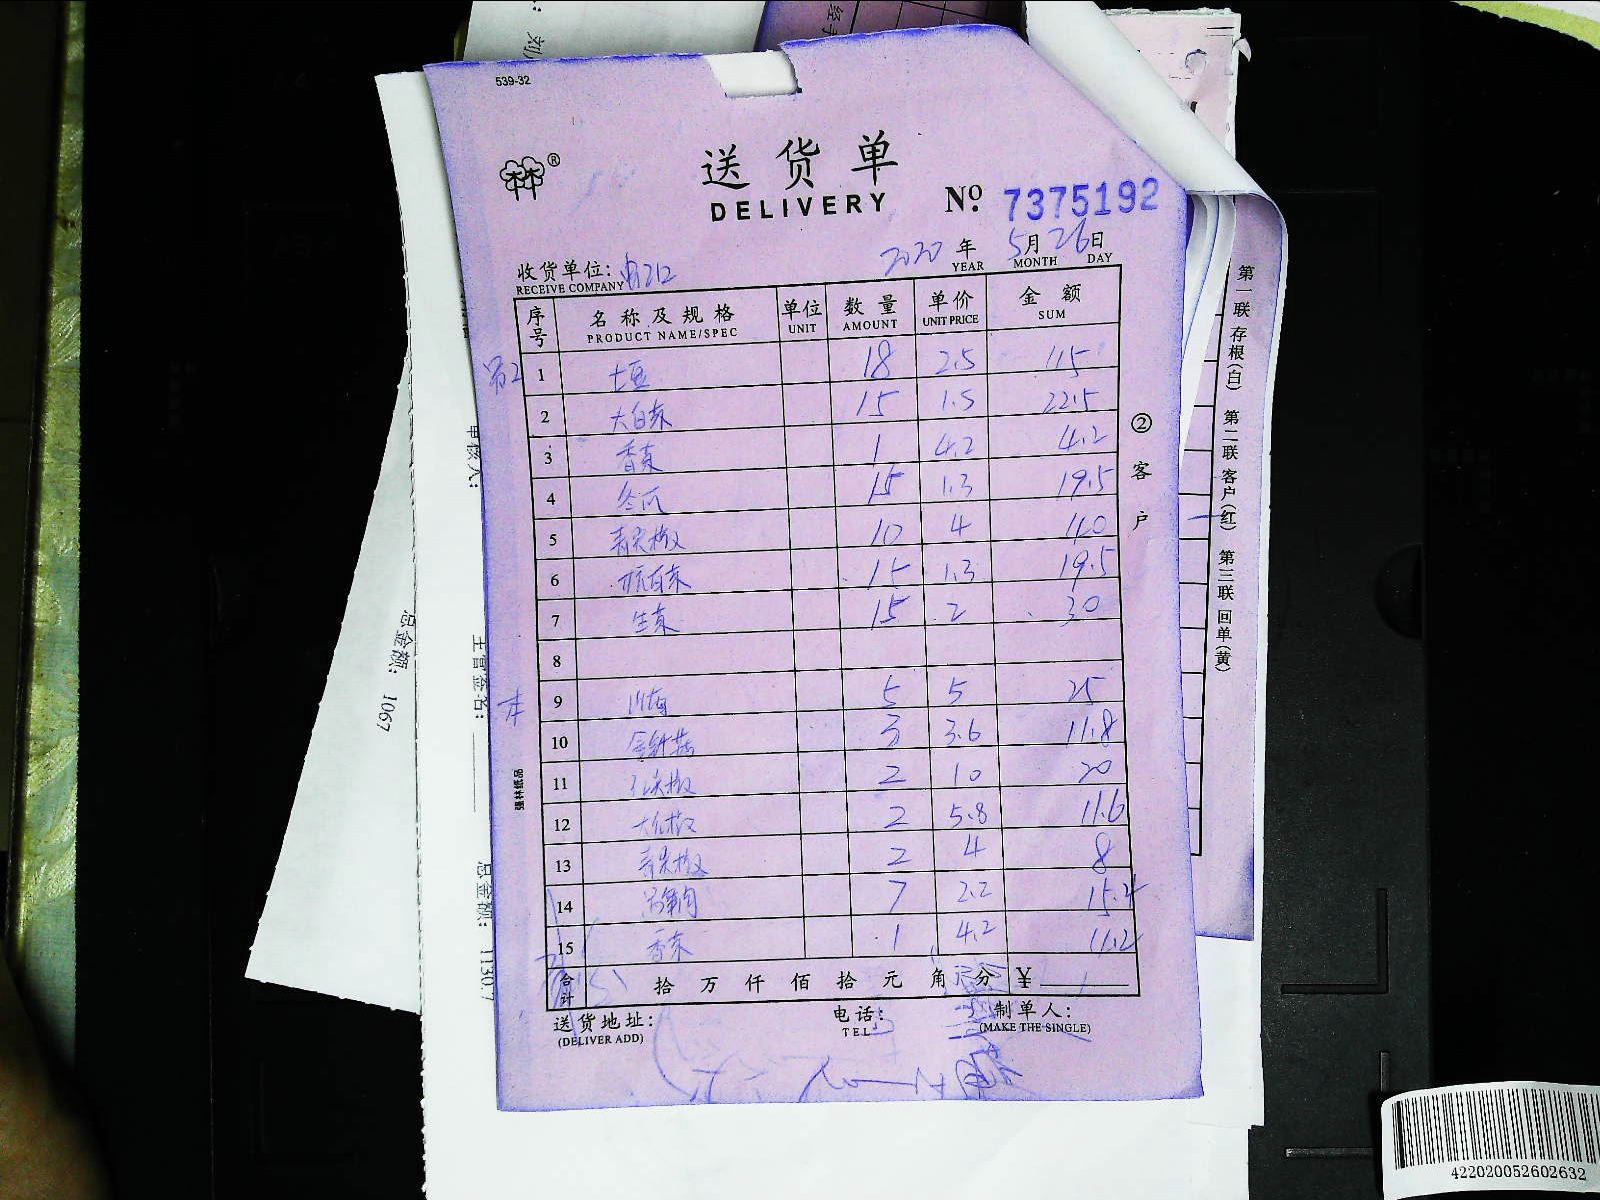 539-32
送货单
DELIVERY
№ 7375192
2020年 5月26日
YEAR MONTH DAY
收货单位:
RECEIVE COMPANY
序号 名称及规格 单位 数量 单价 金额
PRODUCT NAME/SPEC UNIT AMOUNT UNIT PRICE SUM
1 土豆 18 2.5 115
2 大白菜 15 1.5 22.5
3 香菜 1 4.2 4.2
4 冬瓜 15 1.3 19.5
5 青尖椒 10 4 40
6 15 1.3 19.5
7 生菜 15 2 30
8
9 5 5 25
10 金针菇 3 3.6 11.8
11 2 10 20
12 2 5.8 11.6
13 青尖椒 2 4 8
14 7 2.2 15.4
15 香菜 1 4.2 11.2
合计 拾 万 仟 佰 拾 元 角 分 ¥
送货地址: 电话: 制单人:
(DELIVER ADD) TEL (MAKE THE SINGLE)
②客户
第一联存根(白) 第二联客户(红) 第三联回单(黄)
强林纸品
审核人:
主管签名:
总金额: 1067
总金额: 1130.7
422020052602632